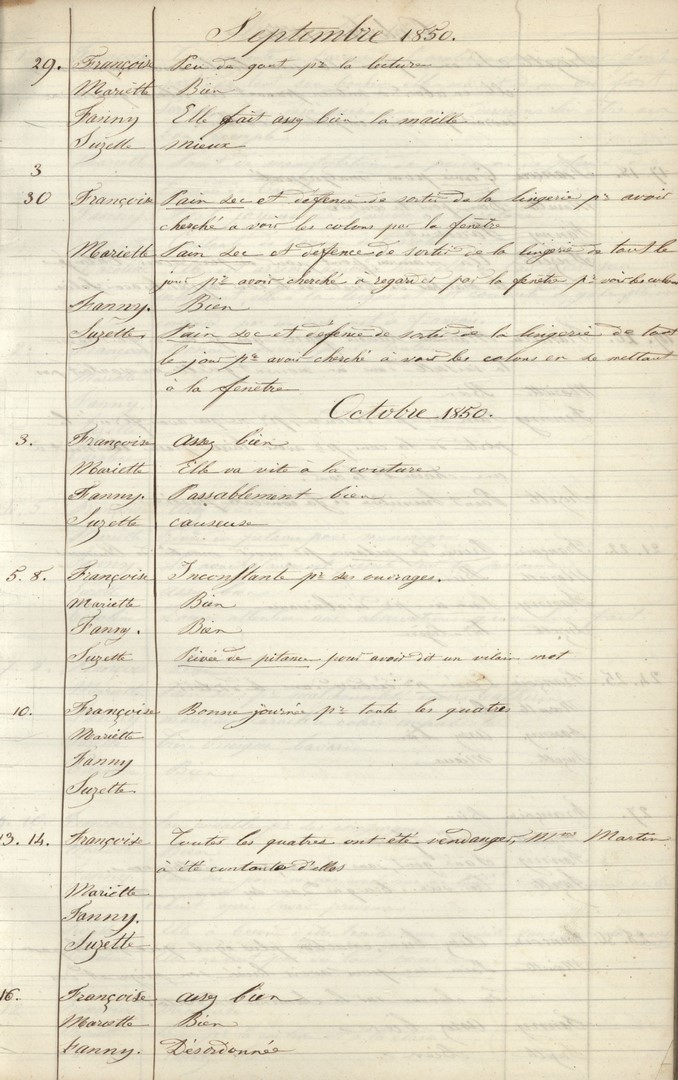 Septembre 1850.
29. Françoise Peu de gout pr la lecture
Mariette Bien
Fanny Elle fait assez bien la maille
Suzette mieux
3
30 Françoise Pain sec et défence de sortir de la lingerie pr avoir
cherché a voir les colons par la fenêtre
Mariette Pain sec et défence de sortir de la lingerie de tout le
jour pr avoir cherché à regarder par la fenêtre pr voir les colons
Fanny. Bien
Suzette. Pain sec et défence de sortir de la lingerie de tout
le jour pr avoir cherché à voir les colons en se mettant
à la fenêtre
Octobre 1850.
3. Françoise assez bien
Mariette Elle va vite à la couture
Fanny. Passablement bien
Suzette causeuse
5. 8. Françoise Inconstante pr ses ouvrages.
Mariette Bien
Fanny. Bien
Suzette Privée de pitance pour avoir dit un vilain mot
10. Françoise Bonne journée pr toute les quatres
Mariette
Fanny
Suzette
13. 14. Françoise Toutes les quatres ont été vendanger, Mme Martin
à été contante d'elles
Mariette
Fanny.
Suzette
16. Françoise assez bien
Mariette Bien
Fanny. Désordonnée